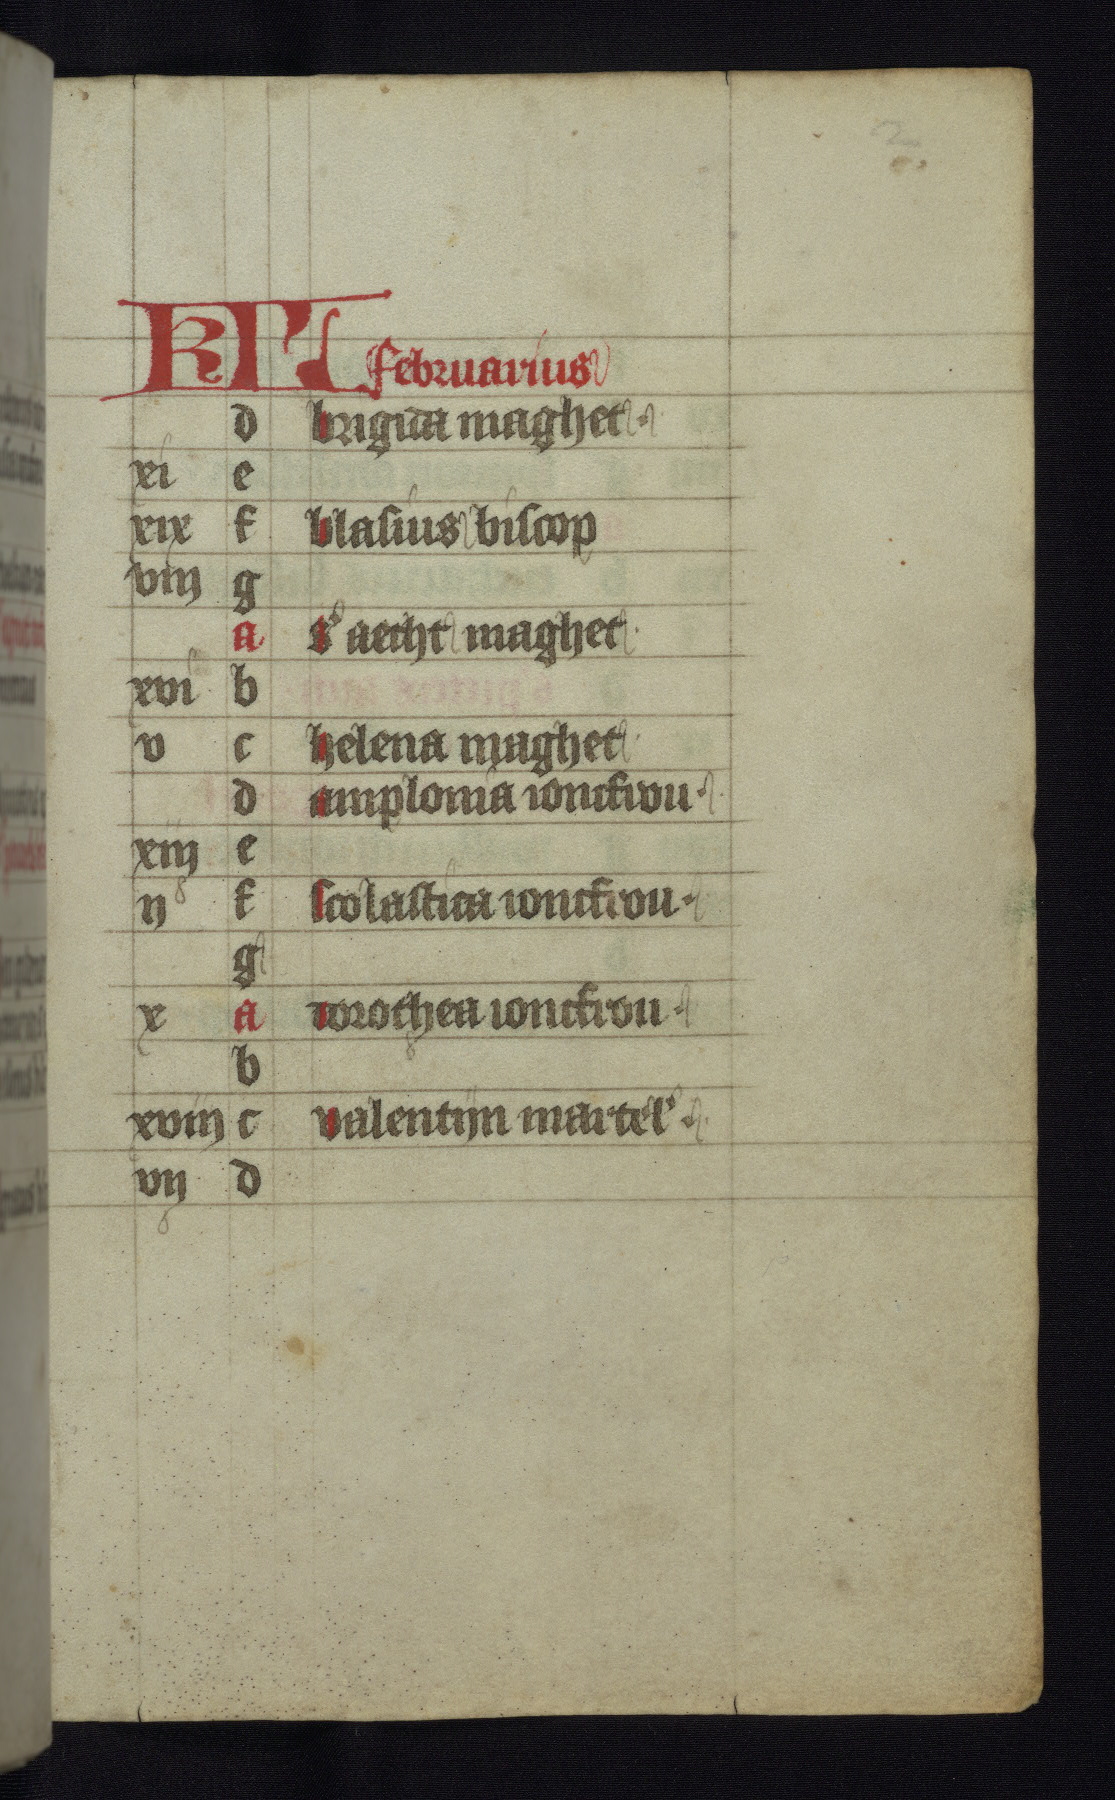 2
KL februarius
d brigida maghet
xi e
xix f blasius biscop
viij g
a s' aecht maghet
xvi b
v c helena maghet
d amplonia ioncfrou
xiij e
ij f scolastica ioncfrou
g
x a dorothea ioncfrou
b
xviij c valentijn martel'
vij d